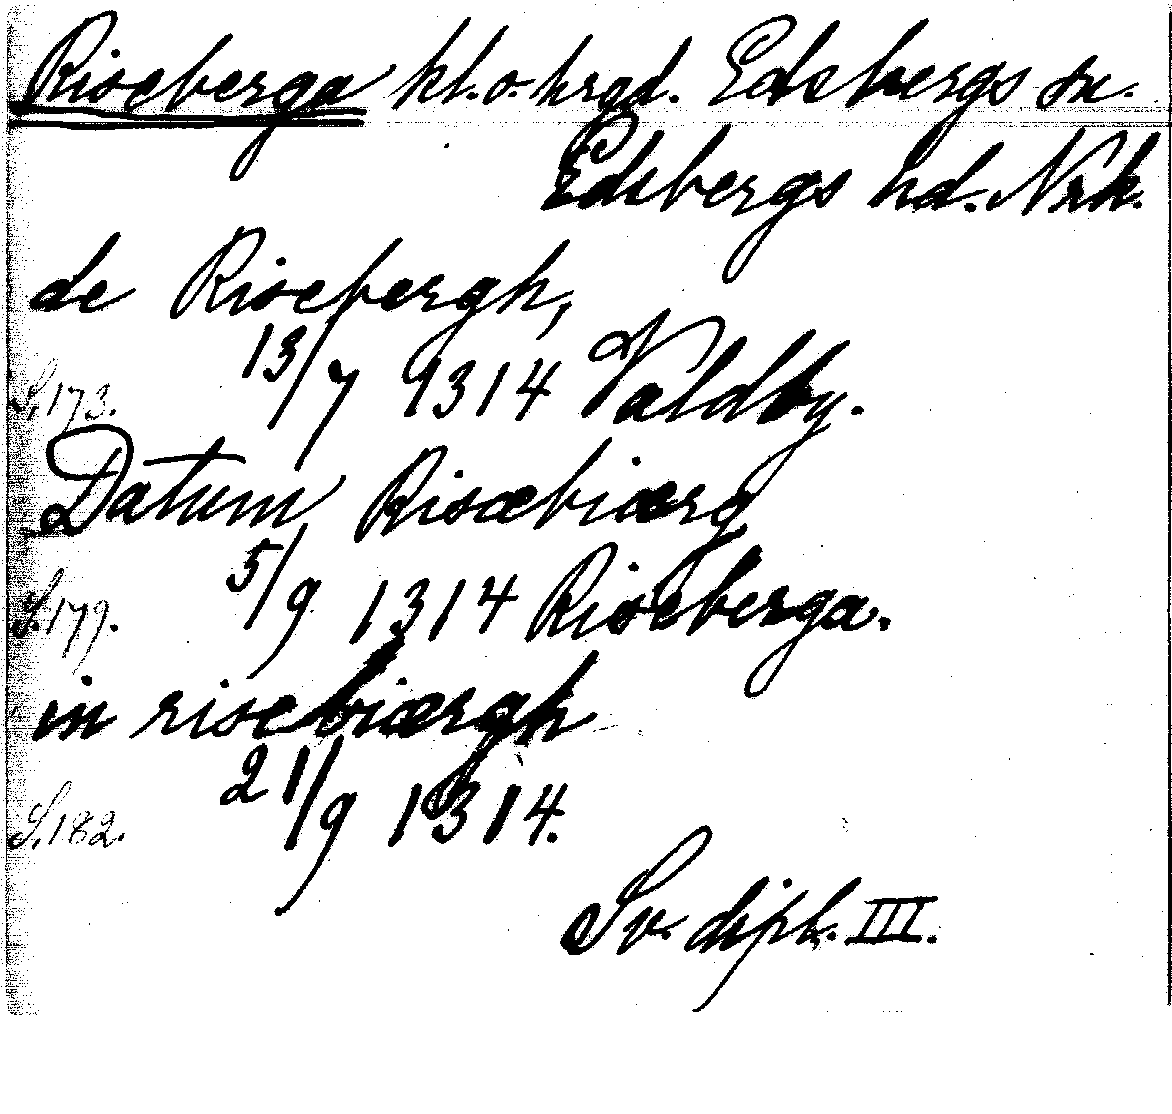 Riseberga kl. o. hrgd. Edsbergs sn.
Edsbergs hd. Nrk.
de Risebergh,
13/7 1314 Valdby.
S. 173.
Datum Risæbiærg
5/9 1314 Riseberga.
S. 179.
in risebiærgh
21/9 1314.
S. 182.
Sv. dipl. III.